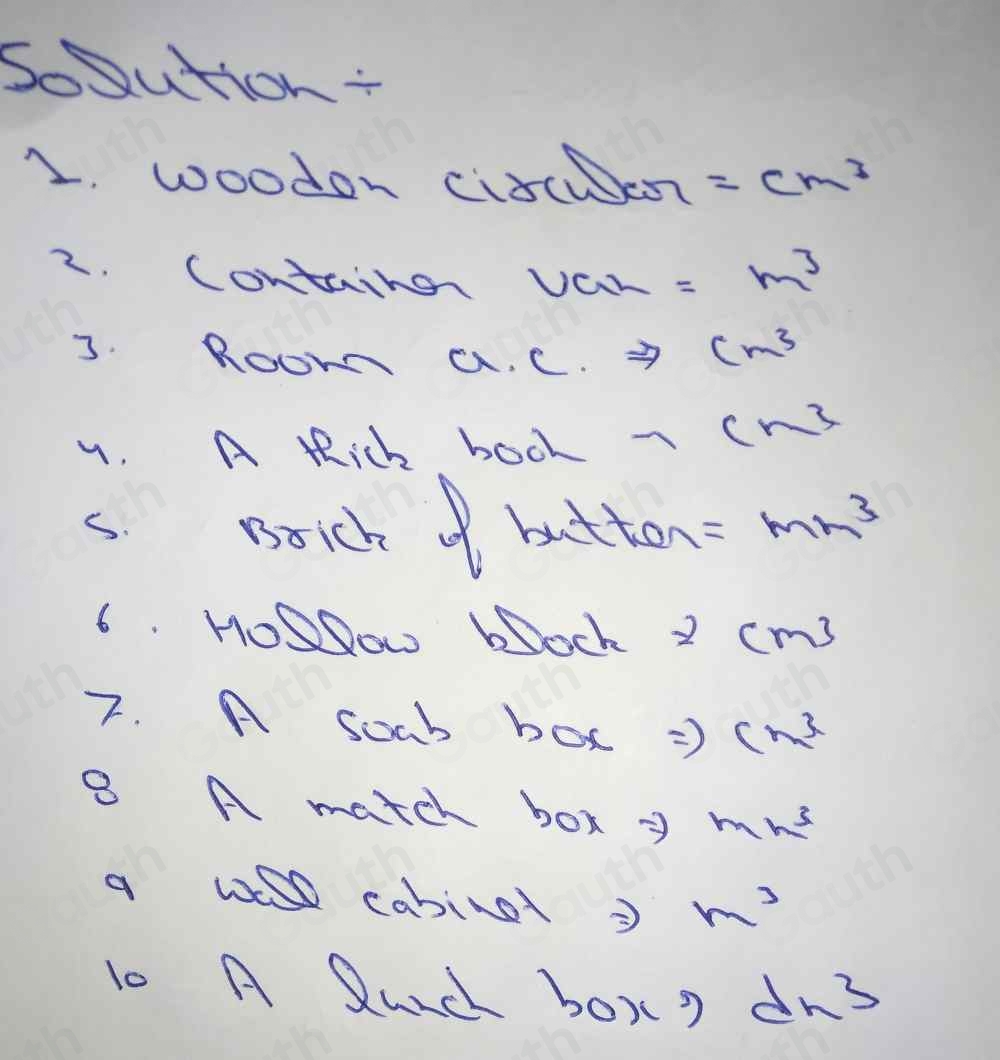 Solution ÷
1. wooden circular = cm³
2. Container van = m³
3. Room a.c. ⇒ cm³
4. A thick book → cm³
5. Brick of butter = mm³
6. Hollow block ⇒ cm³
7. A soab box ⇒ cm³
8 A match box ⇒ mm³
9 wall cabinet ⇒ m³
10 A lunch box ⇒ dm³